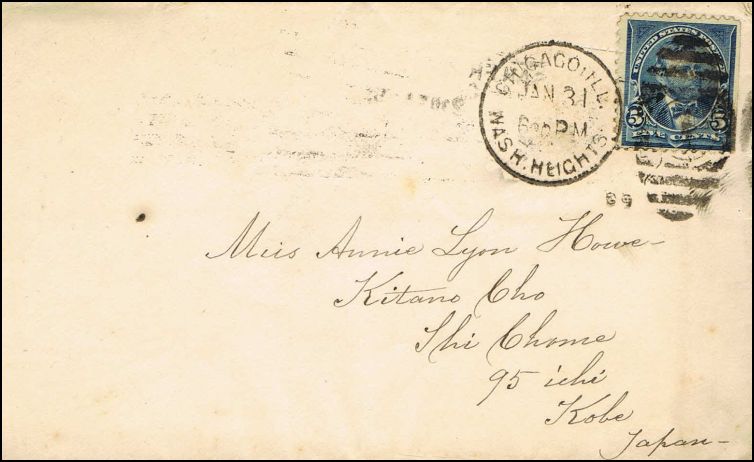 UNITED STATES POSTAGE
5 5
FIVE CENTS
CHICAGO, ILL.
JAN 31
6 30 P.M.
WASH. HEIGHTS.
Miss Annie Lyon Howe-
Kitano Cho
Shi Chome
95 ichi
Kobe
Japan-